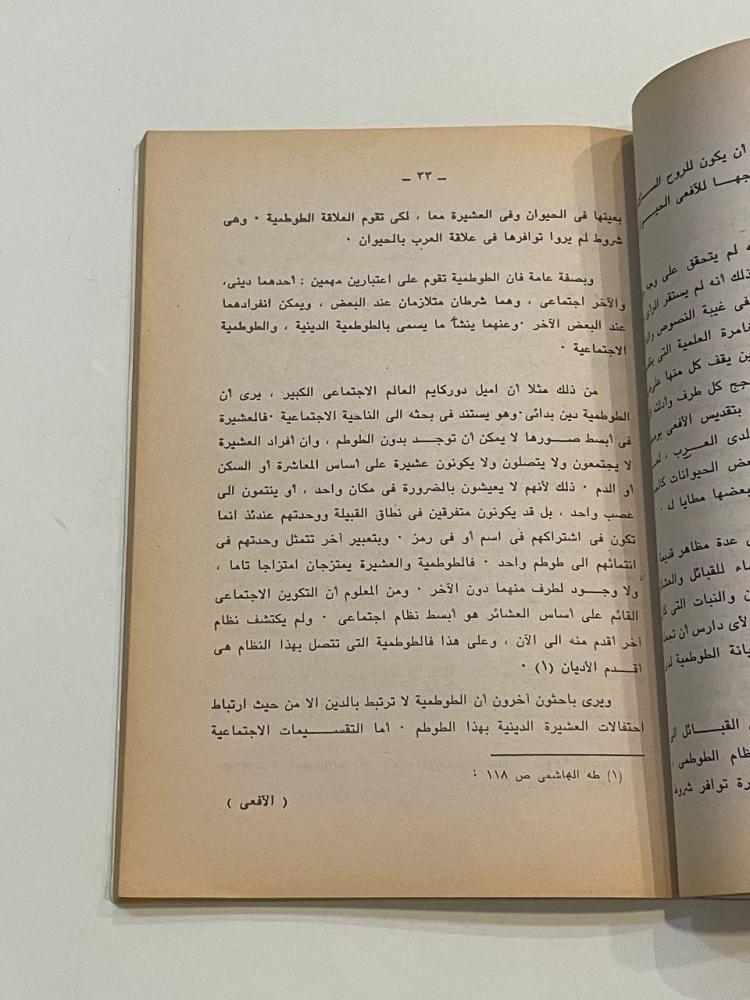 ـ ٣٣ ـ
بعينها فى الحيوان وفى العشيرة معا ، لكى تقوم العلاقة الطوطمية . وهى
شروط لم يروا توافرها فى علاقة العرب بالحيوان .
وبصفة عامة فان الطوطمية تقوم على اعتبارين مهمين : أحدهما دينى،
والآخر اجتماعى ، وهما شرطان متلازمان عند البعض ، ويمكن انفرادهما
عند البعض الآخر .وعنهما ينشأ ما يسمى بالطوطمية الدينية ، والطوطمية
الاجتماعية .
من ذلك مثلا أن اميل دوركايم العالم الاجتماعى الكبير ، يرى أن
الطوطمية دين بدائى.وهو يستند فى بحثه الى الناحية الاجتماعية .فالعشيرة
فى أبسط صورها لا يمكن أن توجد بدون الطوطم ، وان أفراد العشيرة
لا يجتمعون ولا يتصلون ولا يكونون عشيرة على أساس المعاشرة أو السكن
أو الدم . ذلك لأنهم لا يعيشون بالضرورة فى مكان واحد ، أو ينتمون الى
عصب واحد ، بل قد يكونون متفرقين فى نطاق القبيلة ووحدتهم عندئذ انما
تكون فى اشتراكهم فى اسم أو فى رمز . وبتعبير آخر تتمثل وحدتهم فى
انتمائهم الى طوطم واحد . فالطوطمية والعشيرة يمتزجان امتزاجا تاما ،
ولا وجود لطرف منهما دون الآخر . ومن المعلوم أن التكوين الاجتماعى
القائم على أساس العشائر هو أبسط نظام اجتماعى . ولم يكتشف نظام
آخر أقدم منه الى الآن ، وعلى هذا فالطوطمية التى تتصل بهذا النظام هى
أقدم الأديان (١) .
ويرى باحثون آخرون أن الطوطمية لا ترتبط بالدين الا من حيث ارتباط
احتفالات العشيرة الدينية بهذا الطوطم . أما التقسيمات الاجتماعية
(١) طه الهاشمى ص ١١٨ :
( الأفعى )
أن يكون للروح
للأفعى
لم يتحقق على وجه
ذلك أنه لم يستقر
فى غيبة النصوص
العلمية التى
يقف كل منها
كل طرف
بتقديس الأفعى
لدى العرب ،
الحيوانات
بعضها مطايا
عدة مظاهر
للقبائل
والنبات التى
لأى دارس أن
الطوطمية
القبائل
الطوطمى
توافر